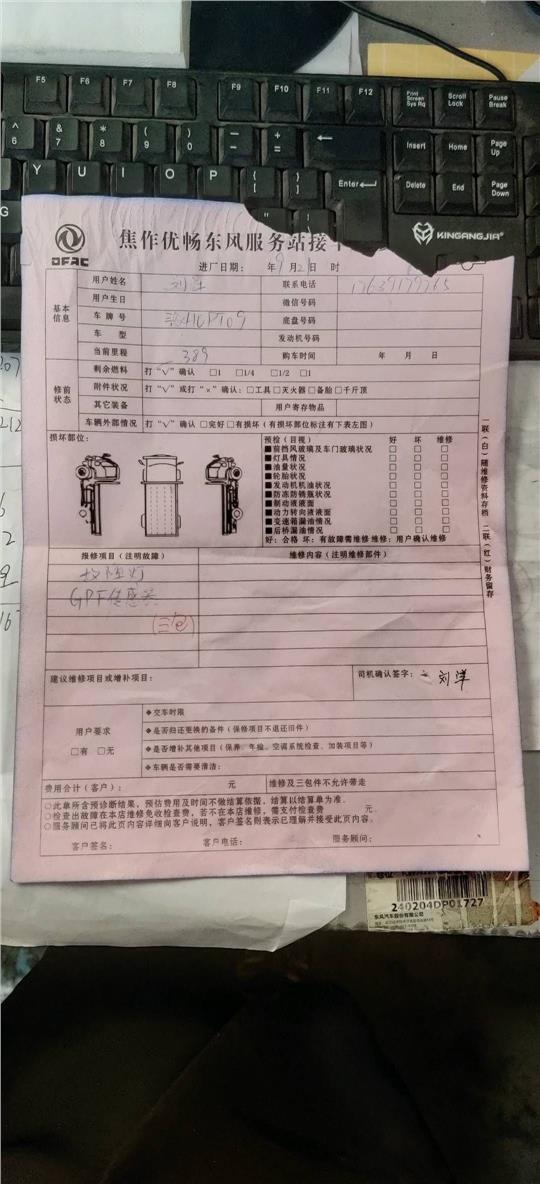 F5 F6 F7 F8 F9 F10 F11 F12 Print Screen Sys Rq Scroll Lock Pause Break
^ 6 & 7 * 8 ( 9 ) 0 Insert Home Page Up
Y U I O P { [ } ] Enter Delete End Page Down
G
KINGANGJIA
DFAC
焦作优畅东风服务站接
进厂日期: 年9月21日 时
基本信息
用户姓名 刘洋 联系电话
用户生日 微信号码
车牌号 底盘号码
车 型 发动机号码
当前里程 389 购车时间 年 月 日
修前状态
剩余燃料 打“√”确认 □1 □1/4 □1/2 □1
附件状况 打“√”或打“×”确认:□工具□灭火器□备胎□千斤顶
其它装备 用户寄存物品
车辆外部情况 打“√”确认 □完好□有损坏(有损坏部位标注有下表左图)
损坏部位:
预检(目视) 好 坏 维修
■前挡风玻璃及车门玻璃状况 □ □ □
■灯具情况 □ □ □
■油量状况 □ □ □
■轮胎状况 □ □ □
■发动机机油状况 □ □ □
■防冻防锈瓶状况 □ □ □
■制动液液面 □ □ □
■动力转向液液面 □ □ □
■变速箱漏油情况 □ □ □
■后桥漏油情况 □ □ □
好:合格 坏:有故障需维修 维修:用户确认维修
报修项目(注明故障) 维修内容(注明维修部件)
故障灯
GPF传感器
三包
建议维修项目或增补项目:
司机确认签字: 刘洋
用户要求
□有 □无
◆交车时限
◆是否归还更换的备件(保修项目不退还旧件)
◆是否增补其他项目(保养、年检、空调系统检查、加装项目等)
◆车辆是否需要清洁:
费用合计(客户): 元 维修及三包件不允许带走
○此单所含预诊断结果,预估费用及时间不做结算依据,结算以结算单为准。
○检查出故障在本店维修免收检查费,若不在本店维修,需支付检查费 元。
○服务顾问已将此页内容详细向客户说明,客户签名则表示已理解并接受此页内容。
客户签名: 客户电话: 服务顾问:
一联(白)随维修资料存档 二联(红)财务留存
240204DP01727
东风汽车股份有限公司